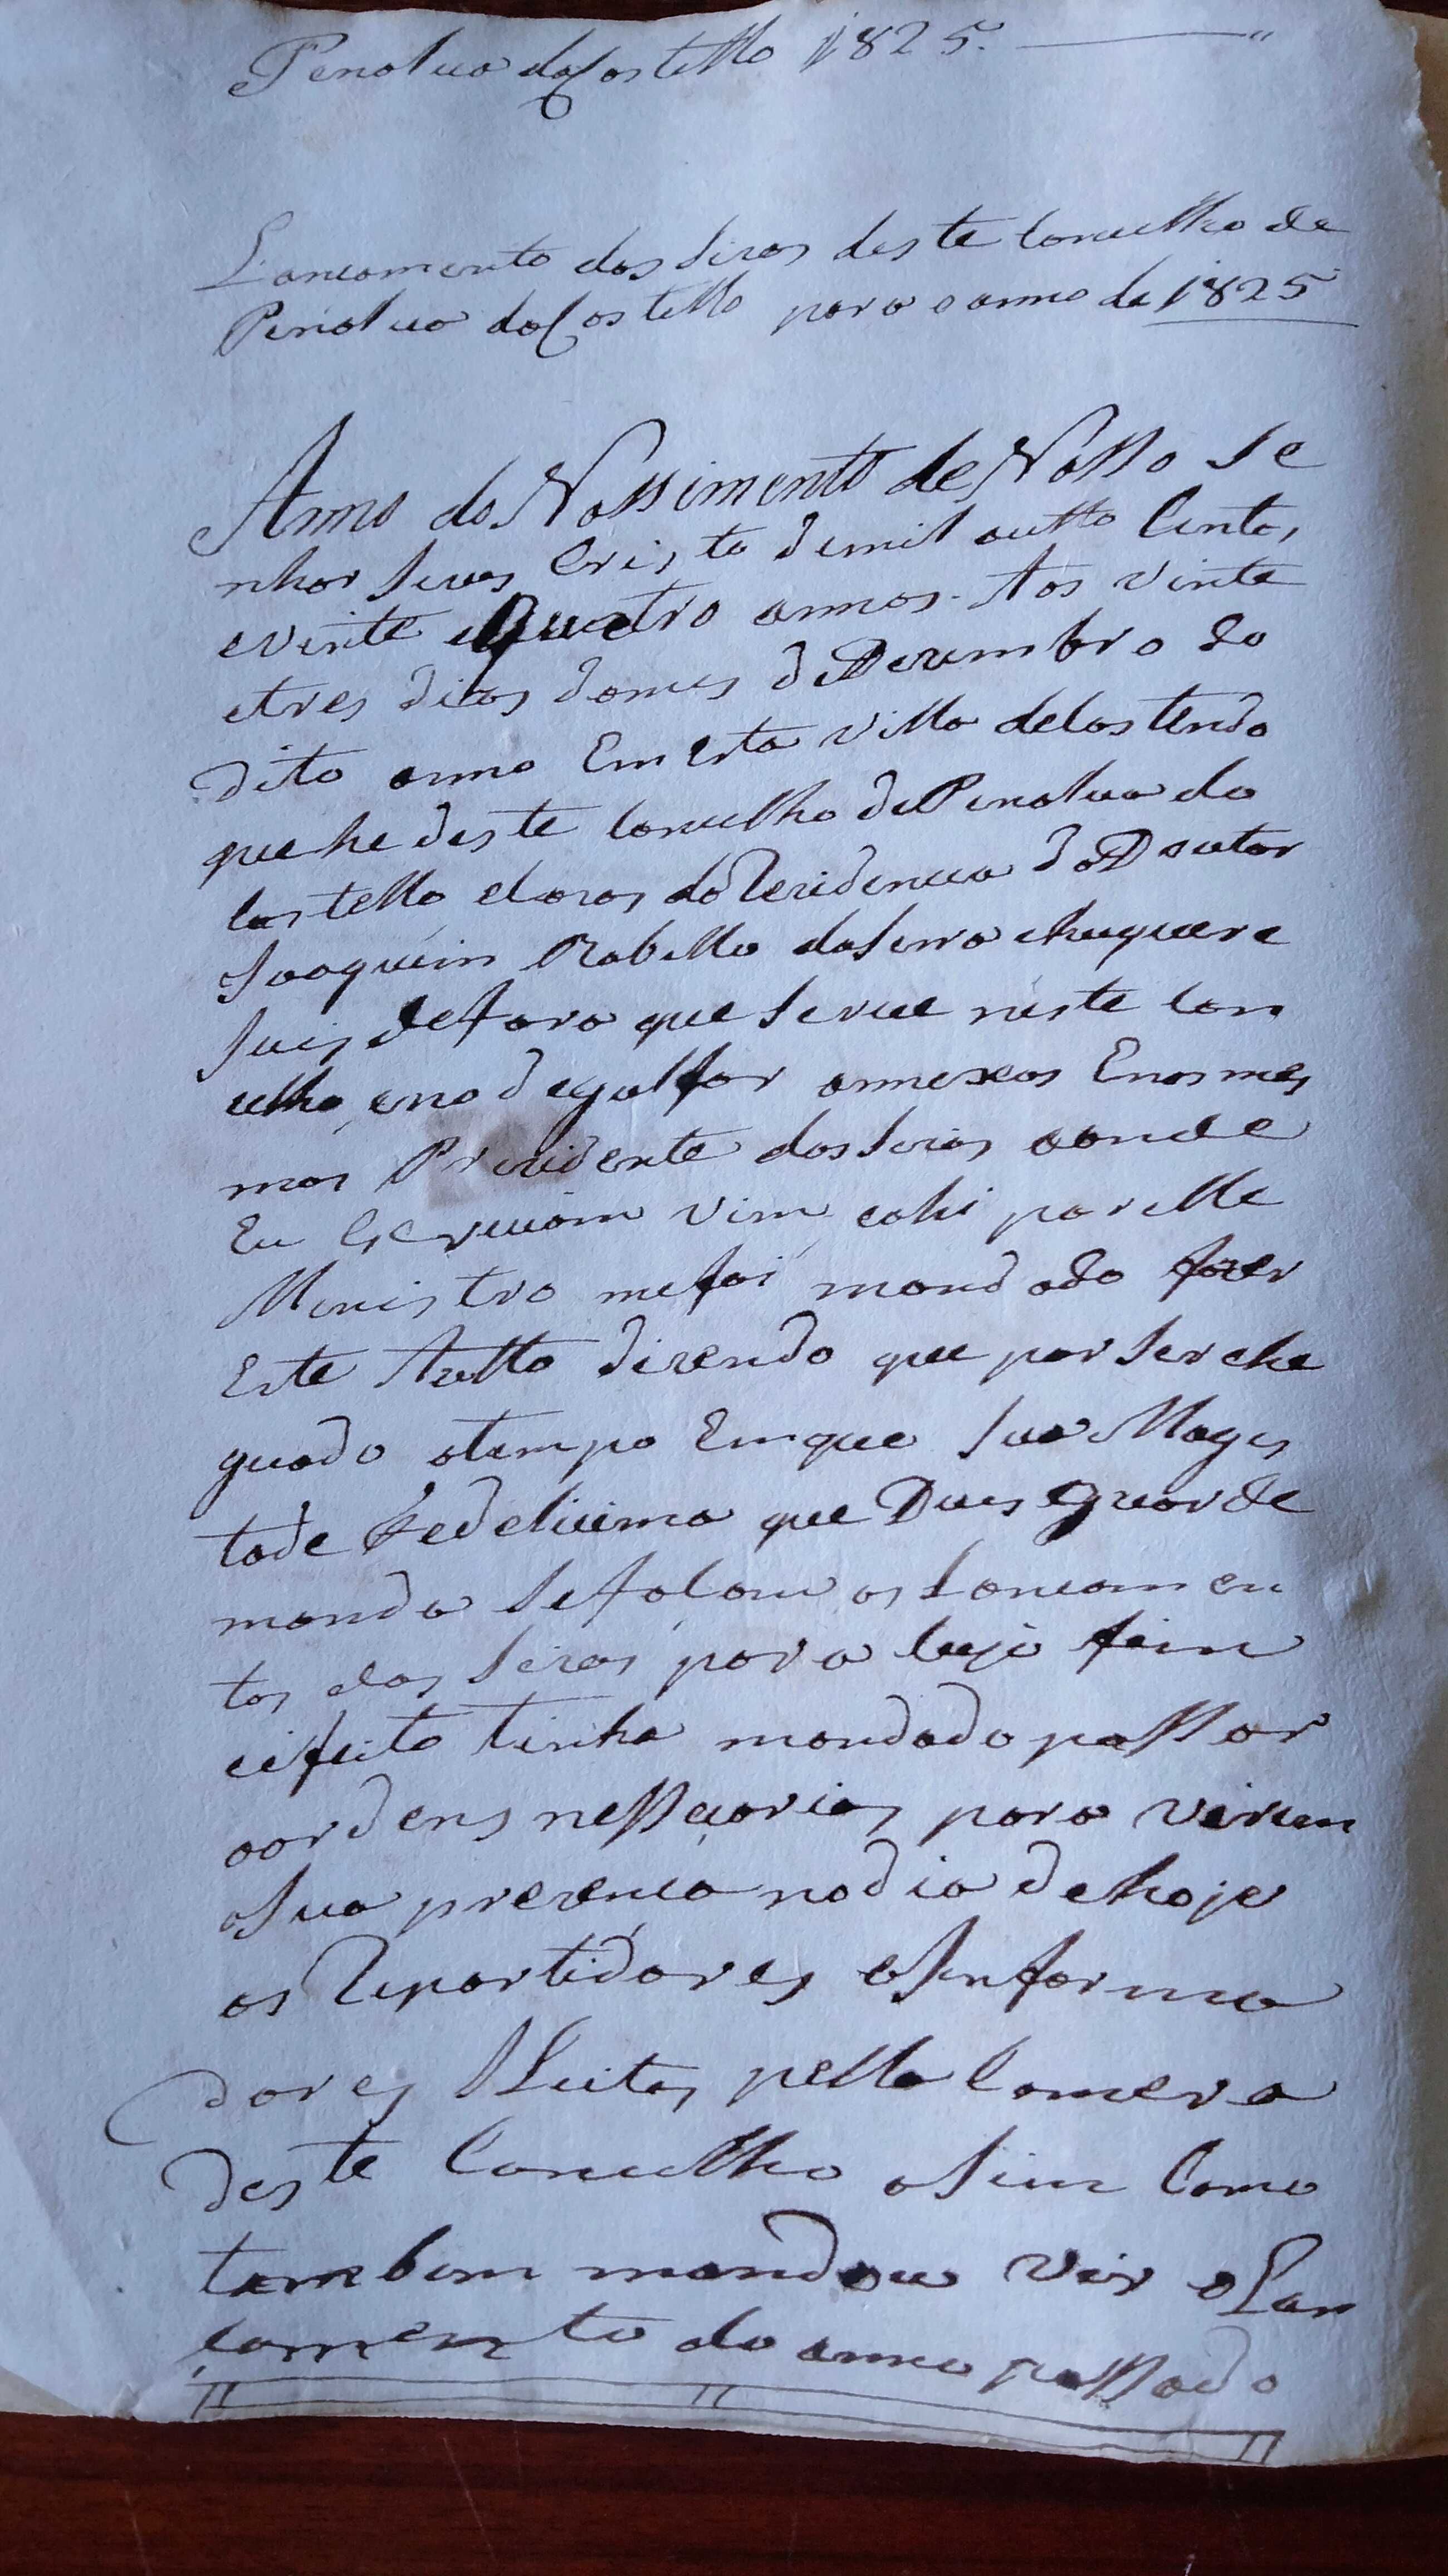 Penalva do Castello 1825.
Lancamento das Sizas deste Concelho de
Penalva do Castello para o anno de 1825
Anno do Nassimento de Nosso Se
nhor Jezus Cristo de mil outto Centos
e vinte e Quatro annos. Aos vinte
e tres dias do mes de Dezembro do
dito anno Em esta Villa de Castendo
que he deste Concelho de Penalva do
Castello e Cazas da Rezidencia do Doutor
Joaquim Rabello da Serra e
Juis de Fora que Serve neste Con
celho, e no de Gulfar annexos E nos mes
mos Prezidente das Sizas aonde
Eu Escrivam vim e ahi por elle
Menistro me foi mandado fazer
Este Autto dizendo que por Ser che
guado o tempo Em que Sua Mages
tade Fedelicima que Deus Guarde
manda Se facam os Lancamen
tos das Sizas para Cujo fim
e ifeito tinha mandado passar
as ordens nessecarias para virem
a Sua prezenca no dia de hoje
os Repartidores e Informa
dores Eleitos pella Camera
deste Concelho a Sim Como
tambem mandou vir o Lan
camento do anno passado